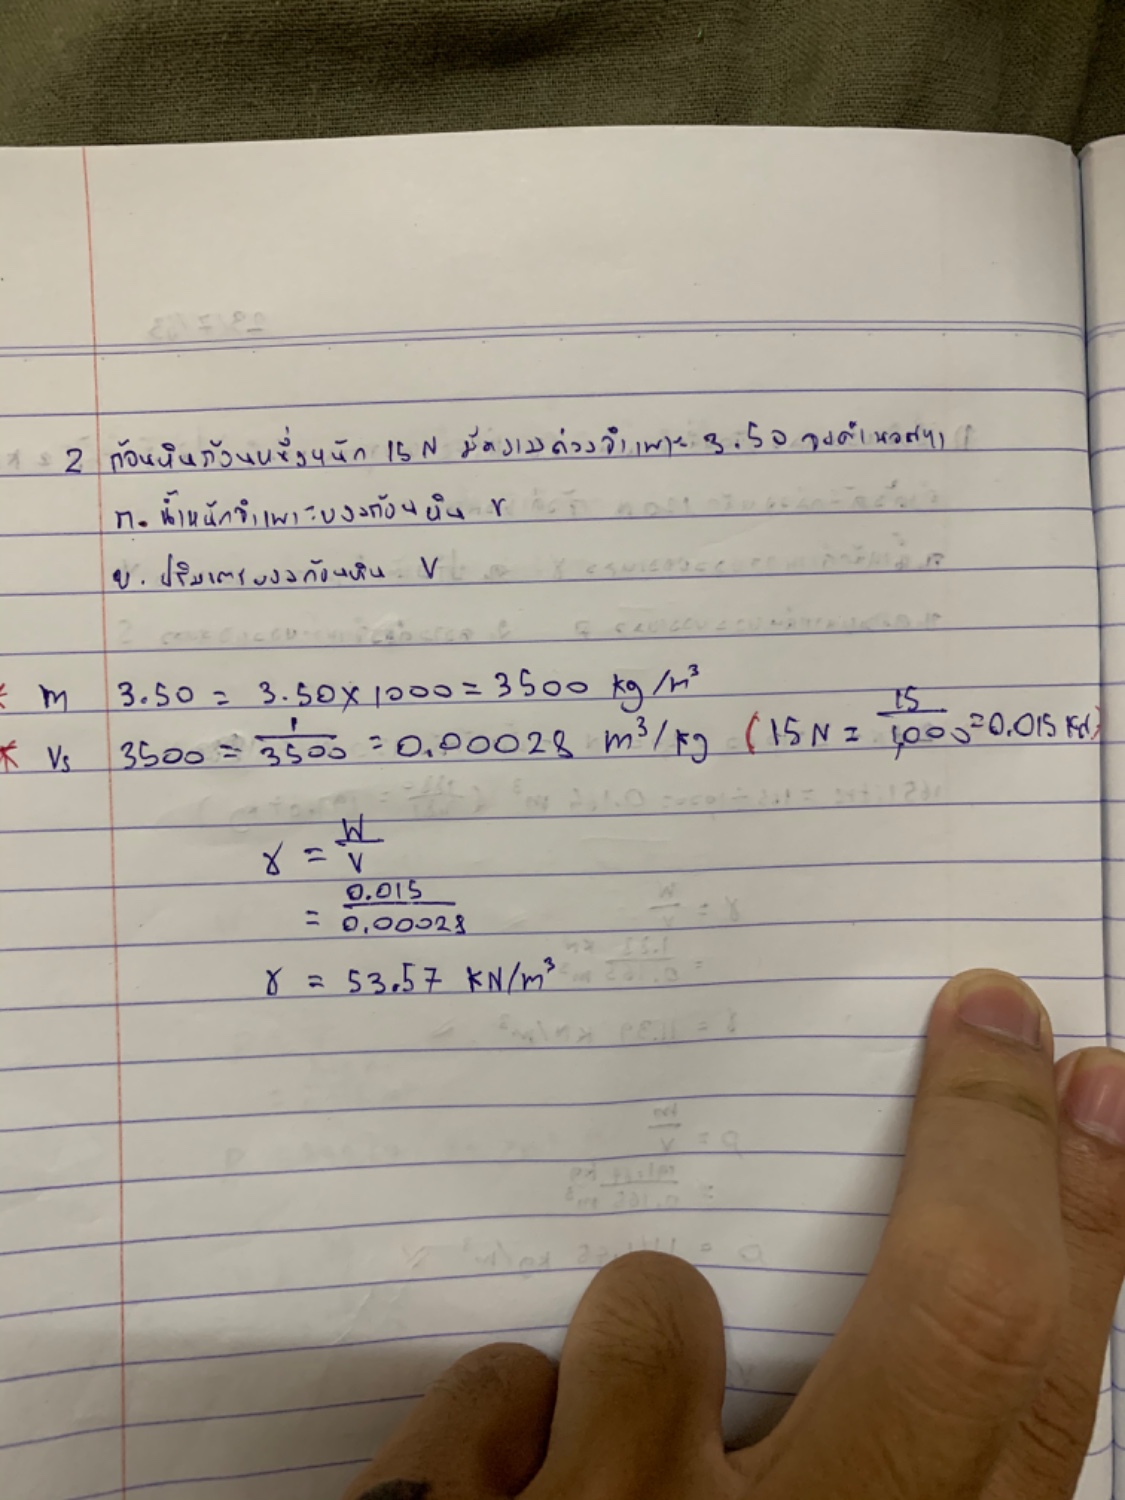 2 ก้อนหินก้อนหนึ่งหนัก 15 N มีความถ่วงจำเพาะ 3.50 จงคำนวณหา
ก. น้ำหนักจำเพาะของก้อนหิน γ
ข. ปริมาตรของก้อนหิน V
* m 3.50 = 3.50 × 1000 = 3500 kg/m³
* Vs 3500 = 1/3500 = 0.00028 m³/kg (15 N = 15/1,000 = 0.015 KN)
γ = W/V
= 0.015/0.00028
γ = 53.57 KN/m³